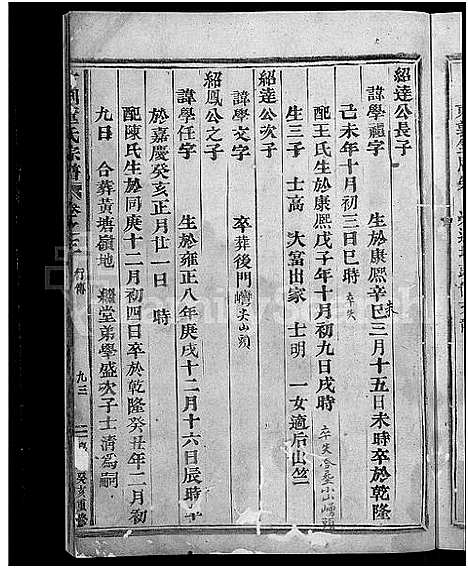 紹達公長子
諱學禮字 生於康熙辛巳三月十五日未時卒於乾隆
己未年十月初三日巳時 卒失
配王氏生於康熙戊子年十月初九日戌時 卒失合塟山
生三子 士高 大富出家 士明 一女適后山竺
紹達公次子
諱學文字 卒葬後門山頭
紹鳳公之子
諱學任字 生於雍正八年庚戌十二月十六日辰時卒
於嘉慶癸亥正月廿一日 時
配陳氏生於同庚十二月初四日卒於乾隆癸丑年二月初
九日 合葬黃塘嶺地 繼堂弟學盛次子士清為嗣
氏宗譜 卷之 行傳 九三 癸亥重修